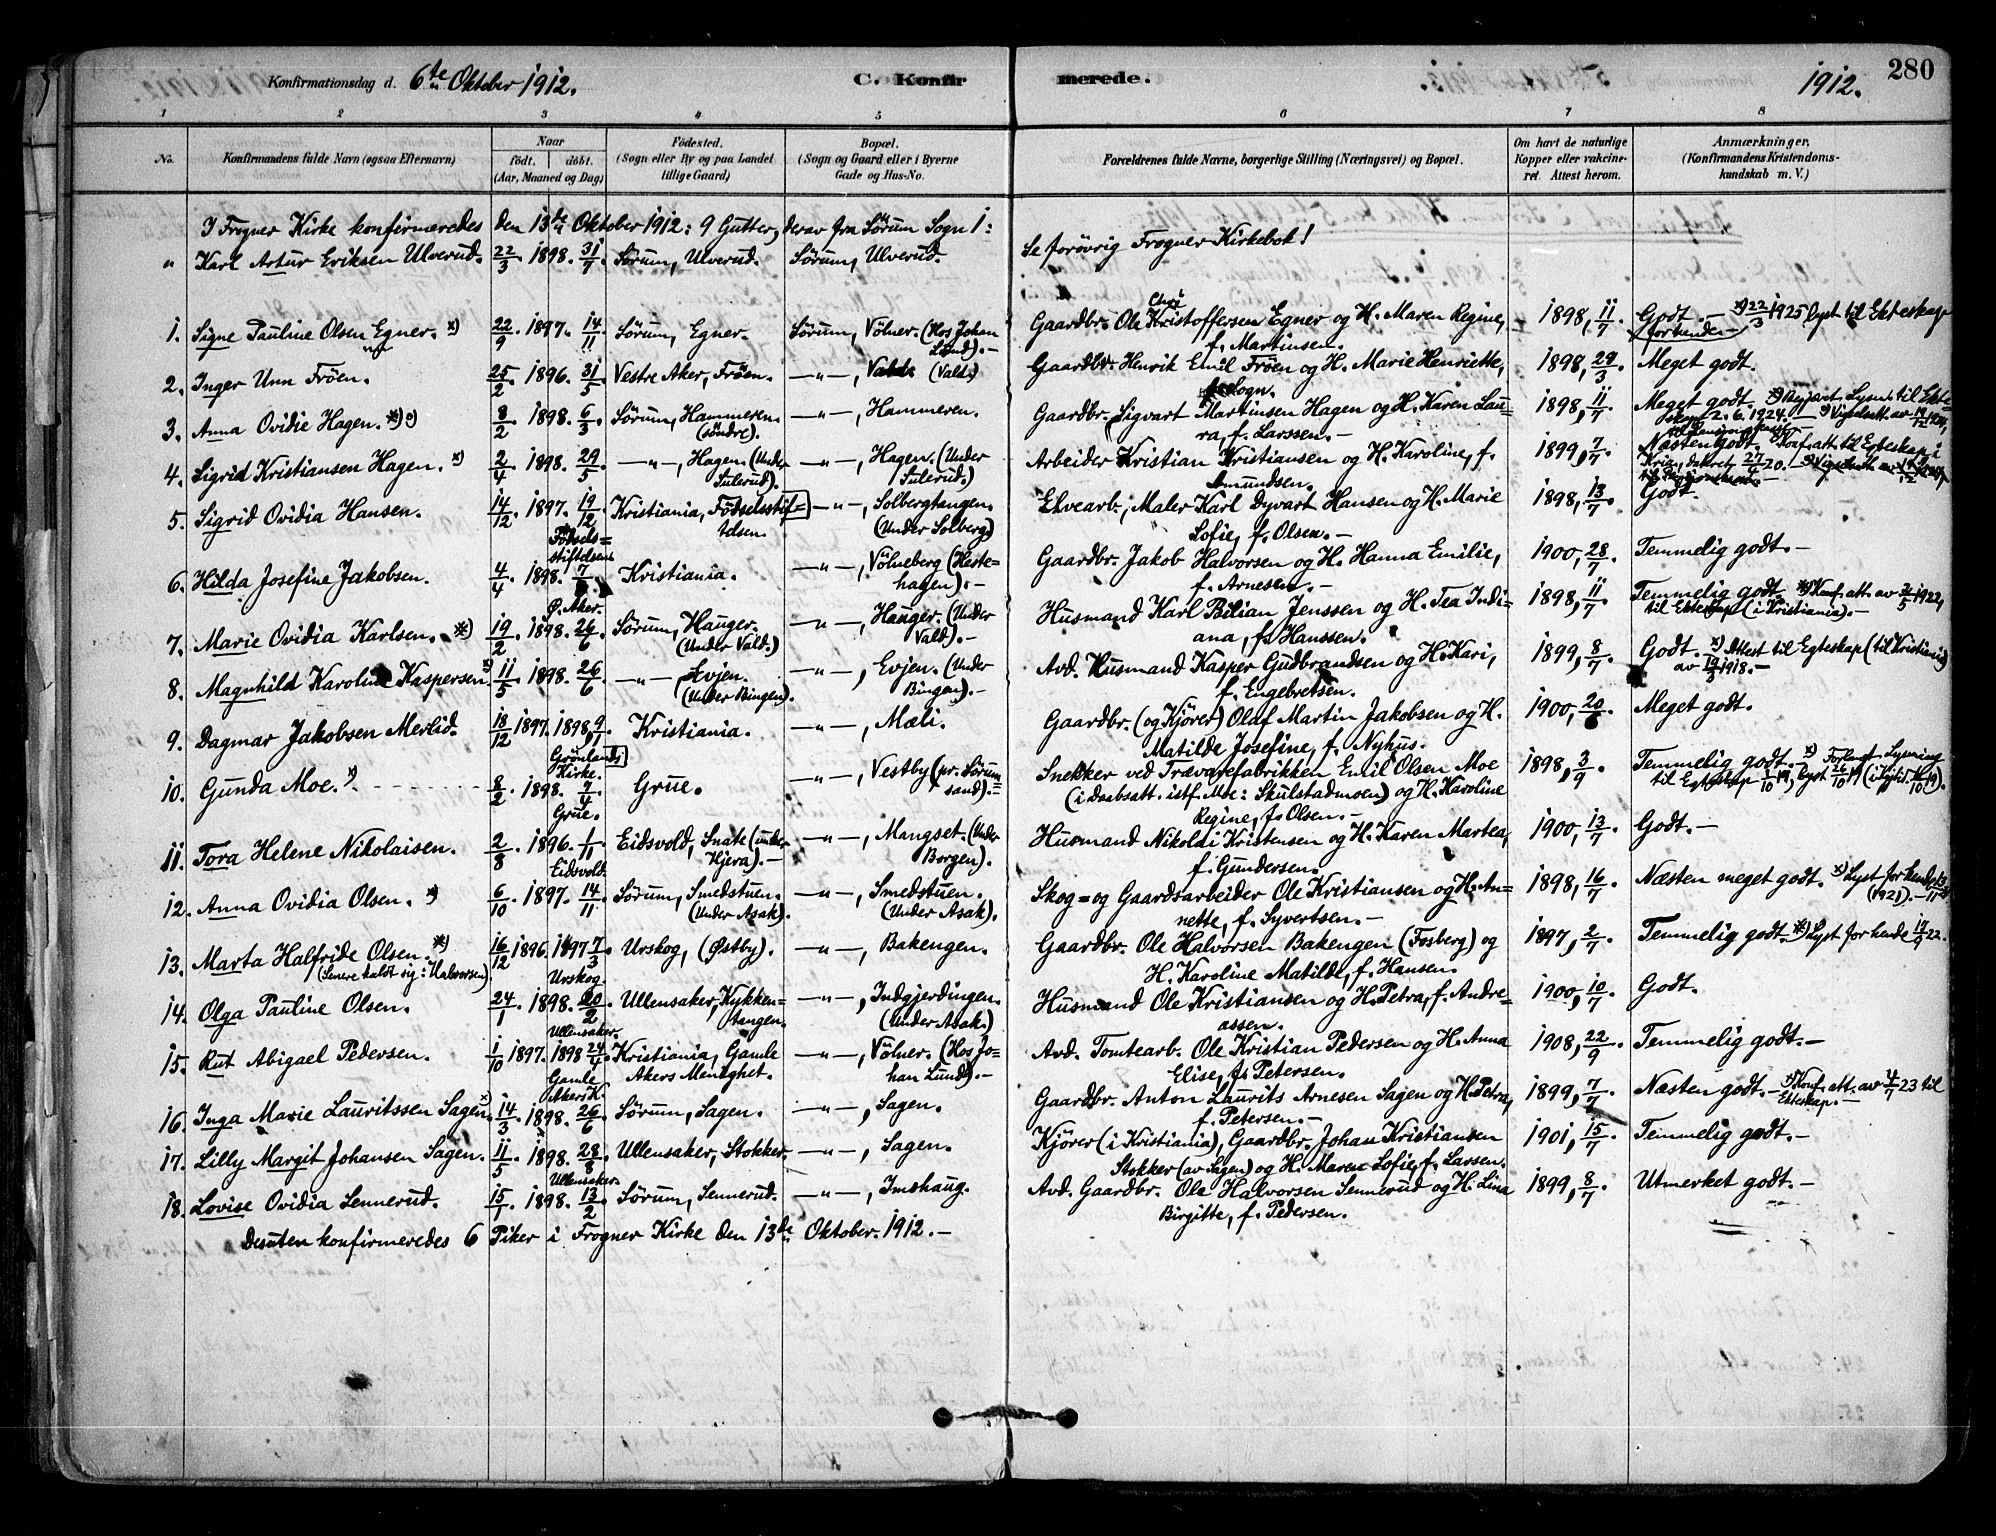 Konfirmationsdag d. 6te Oktober 1912. C. Konfirmerede. 1912. 280
1 2 3 4 5 6 7 8
No. Konfirmandens fulde Navn (ogsaa Efternavn) Naar født. døbt. (Aar, Maaned og Dag) Fødested. (Sogn eller By og paa Landet tillige Gaard) Bopæl. (Sogn og Gaard eller i Byerne Gade og Hus-No. Forældrenes fulde Navne, borgerlige Stilling (Næringsvei) og Bopæl. Om havt de naturlige Kopper eller vakcineret. Attest herom. Anmærkninger. (Konfirmandens Kristendomskundskab m. V.)
I Frogner Kirke konfirmeredes den 13de Oktober 1912: 9 Gutter, derav fra Sörum Sogn 1: Se forövrig Frogner Kirkebok!
" Karl Artur Eriksen Ulverud. 22/3. 1898. 31/7. Sörum, Ulverud. Sörum, Ulverud.
1. Signe Pauline Olsen Egner. x) 22/9. 1897. 14/11. Sörum, Egner. Sörum, Völner. (Hos Johan Lund).- Gaardbr. Ole Kristoffersen Egner og H. Maren Regine, f. Martinsen. 1898, 11/7. Godt.- x) 22/3 1925 lyst til Ekteskap forhende-
2. Inger Unn Fröen. 25/2. 1896. 31/5. Vestre Aker, Fröen. -"-, Vald (Vald.) Gaardbr. Henrik Emil Fröen og H. Marie Henriette, f. Sogn. 1898, 29/3. Meget godt.
3. Anna Ovidie Hagen. x) o) 8/2. 1898. 6/3. Sörum, Hammeren (söndre). -"-, Hammeren. Gaardbr. Sigvart Martinsen Hagen og H. Karen Laura, f. Larssen.- 1898, 11/7. Meget godt.
4. Sigrid Kristiansen Hagen. x) 2/4. 1898. 29/5. -"-, Hagen. (Under Sulerud). -"-, Hagen. (Under Sulerud.) Arbeider Kristian Kristiansen og H. Karoline, f. Amundsen. 1899, 7/7. Næsten godt.
5. Sigrid Ovidia Hansen. 14/12. 1897. 19/12. Födselsstiftelsen. Kristiania, Födselsstiftelsen. -"-, Solbergtangen. (Under Solberg.) Elvearb., Maler Karl Dyvart Hansen og H. Marie Sofie, f. Olsen.- 1898, 13/7. Godt.
6. Hilda Josefine Jakobsen. 4/4. 1898. 7/ Ø. Aker. Kristiania. -"-, Völneberg (Hestehagen).- Gaardbr. Jakob Halvorsen og H. Hanna Emilie, f. Arnesen.- 1900, 28/7. Temmelig godt.-
7. Marie Ovidia Karlsen. x) 19/2. 1898. 26/6. Sörum, Hauger. (Under Vald.) -"-, Hauger. (Under Vald).- Husmand Karl Bilian Jenssen og H. Tea Indiana, f. Hanssen. 1898, 11/7. Temmelig godt. x) Konf. att. av 2/5 1922, til Ekteskap (i Kristiania).-
8. Magnhild Karoline Kaspersen. x) 11/5. 1898. 26/6. -"- Evjen. (Under Bingen). -"-, Evjen. (Under Bingen).- Avd. Husmand Kasper Gudbrandsen og H. Kari, f. Engebretsen. 1899, 8/7. Godt. x) Attest til Egteskap (til Kristiania) av 19/3 1918.-
9. Dagmar Jakobsen Merlid. 18/12. 1897. 1898, 9/1. Grönlands Kirke. Kristiania. -"-, Mæli. Gaardbr. (og Kjører) Olaf Martin Jakobsen og H. Matilde Josefine, f. Nyhus. 1900, 20/6. Meget godt.
10. Gunda Moe. x) 8/2. 1898. 7/4. Grue. Grue. -"-, Vestby (pr. Sörumsand).- Snekker ved Trævarefabrikken Emil Olsen Moe (i Daabsatt. istf. Moe: Skulstadmoen) og H. Karoline Regine, f. Olsen.- 1898, 3/9. Temmelig godt.- x) Forlauf. Lysning til Egteskap 1/10 19, lyst 26/10 19
11. Tora Helene Nikolaisen. 2/8. 1896. 1/11. Eidsvold. Eidsvold, Snate (under Hjera).- -"-, Mangset. (Under Borgen). Husmand Nikolai Kristensen og H. Karen Martea, f. Gundersen.- 1900, 13/7. Godt.-
12. Anna Ovidia Olsen. x) 6/10. 1897. 14/11. Sörum, Smedstuen. (Under Asak). -"-, Smedstuen. (Under Asak). Skog= og Gaardsarbeider Ole Kristiansen og H. Annette, f. Syvertsen.- 1898, 16/7. Næsten meget godt. x) Lyst for hende (1921).-
13. Marta Halfride Olsen. x) (Senere kaldt sig: Halvorsen) 16/12 1896. 1897 7/3. Urskog. Urskog, (Østby). -"-, Bakengen. Gaardbr. Ole Halvorsen Bakengen (Fosberg) og H. Karoline Matilde, f. Hansen. 1897, 2/7. Temmelig godt. x) Lyst for hende 17/9 22.
14. Olga Pauline Olsen. 24/1. 1898. 20/2. Ullensaker. Ullensaker, Kykkentangen. -"-, Indgjerdingen. (Under Asak) Husmand Ole Kristiansen og H. Petra, f. Andreassen. 1900, 10/7. Godt.
15. Rut Abigael Pedersen. 1/10 1897. 1898 24/4. Gamle Akers K. Kristiania, Gamle Akers Menighet. -"-, Völner. (Hos Johan Lund).- Avd. Tomtearb. Ole Kristian Pedersen og H. Anna Elise, f. Petersen. 1908, 22/9. Temmelig godt.-
16. Inga Marie Lauritssen Sagen. x) 14/3. 1898. 26/6. Sörum, Sagen. -"-, Sagen. Gaardbr. Anton Laurits Arnesen Sagen og H. Petra, f. Petersen.- 1899, 7/7. Næsten godt.- x) Konf. att. av 4/7 23 til Ekteskap.-
17. Lilly Margit Johansen Sagen. 11/5. 1898. 28/8. Ullensaker. Ullensaker, Stokker. -"-, Sagen. Kjører (i Kristiania), Gaardbr. Johan Kristiansen Stokker (av Sagen) og H. Maren Sofie, f. Larsen. 1901, 15/7. Temmelig godt.-
18. Lovise Ovidia Sennerud. 15/1. 1898. 13/2. Sörum, Sennerud. -"-, Imshaug. Avd. Gaardbr. Ole Halvorsen Sennerud og H. Lina Birgitte, f. Pedersen. 1899, 8/7. Utmerket godt.-
Desuten konfirmeredes 6 Piker i Frogner Kirke den 13de Oktober 1912.-